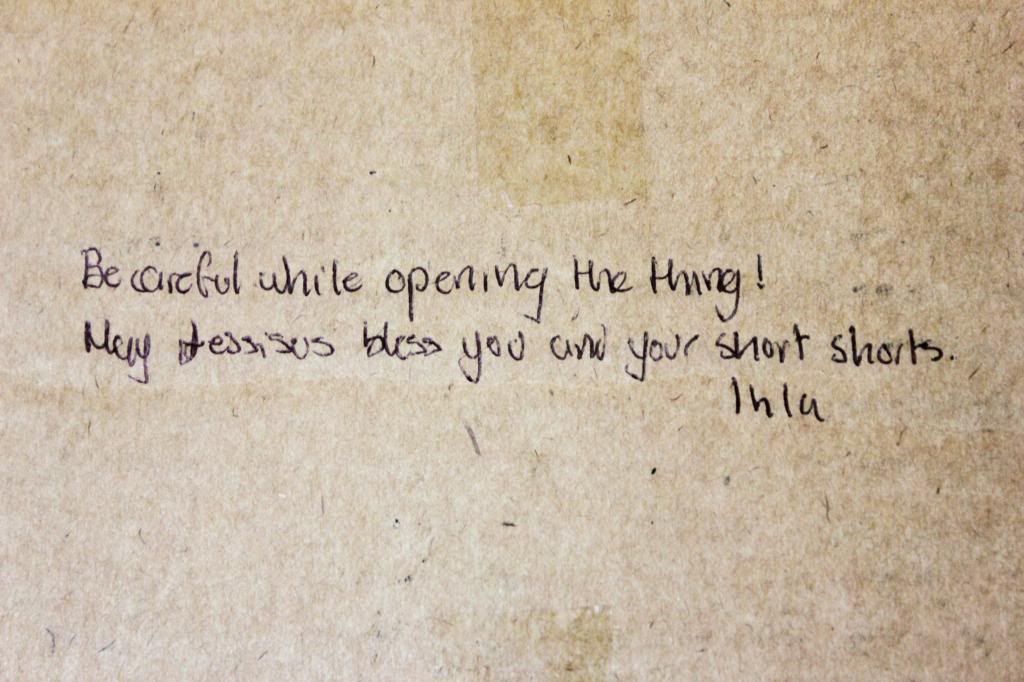 Be careful while opening the thing!
May Jessisus bless you and your short shorts.
Ihla